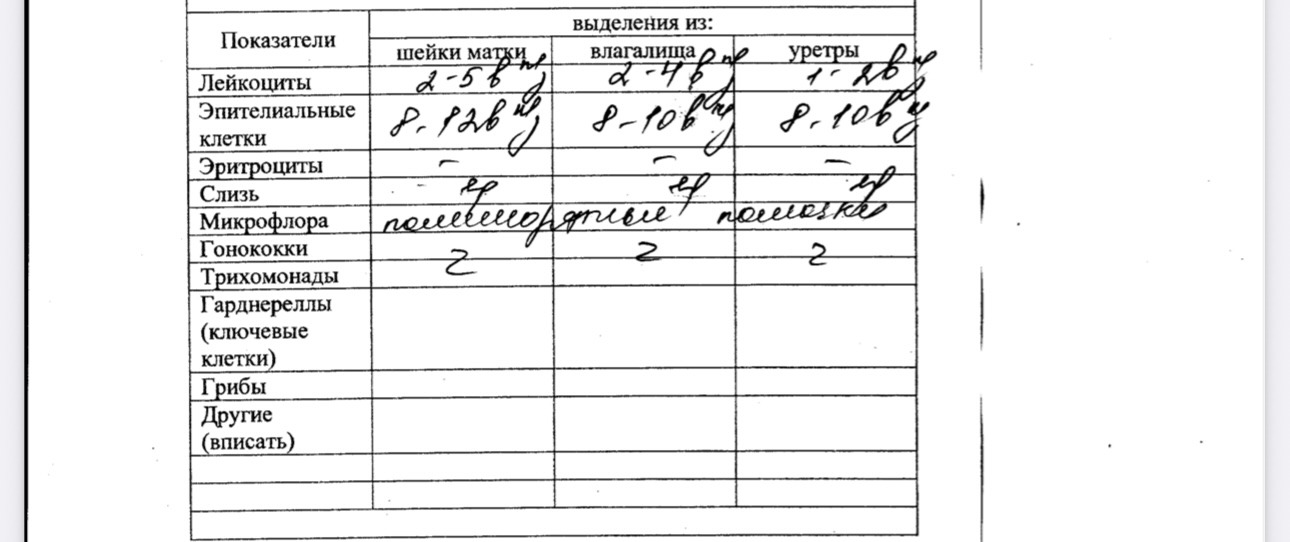 Показатели
выделения из:
шейки матки влагалища уретры
Лейкоциты 2-5 в п/ 2-4 в п/ 1-2 в п/
Эпителиальные клетки 8-12 в п/ 8-10 в п/ 8-10 в п/
Эритроциты - - -
Слизь
Микрофлора полиморфные палочки
Гонококки
Трихомонады
Гарднереллы
(ключевые
клетки)
Грибы
Другие
(вписать)